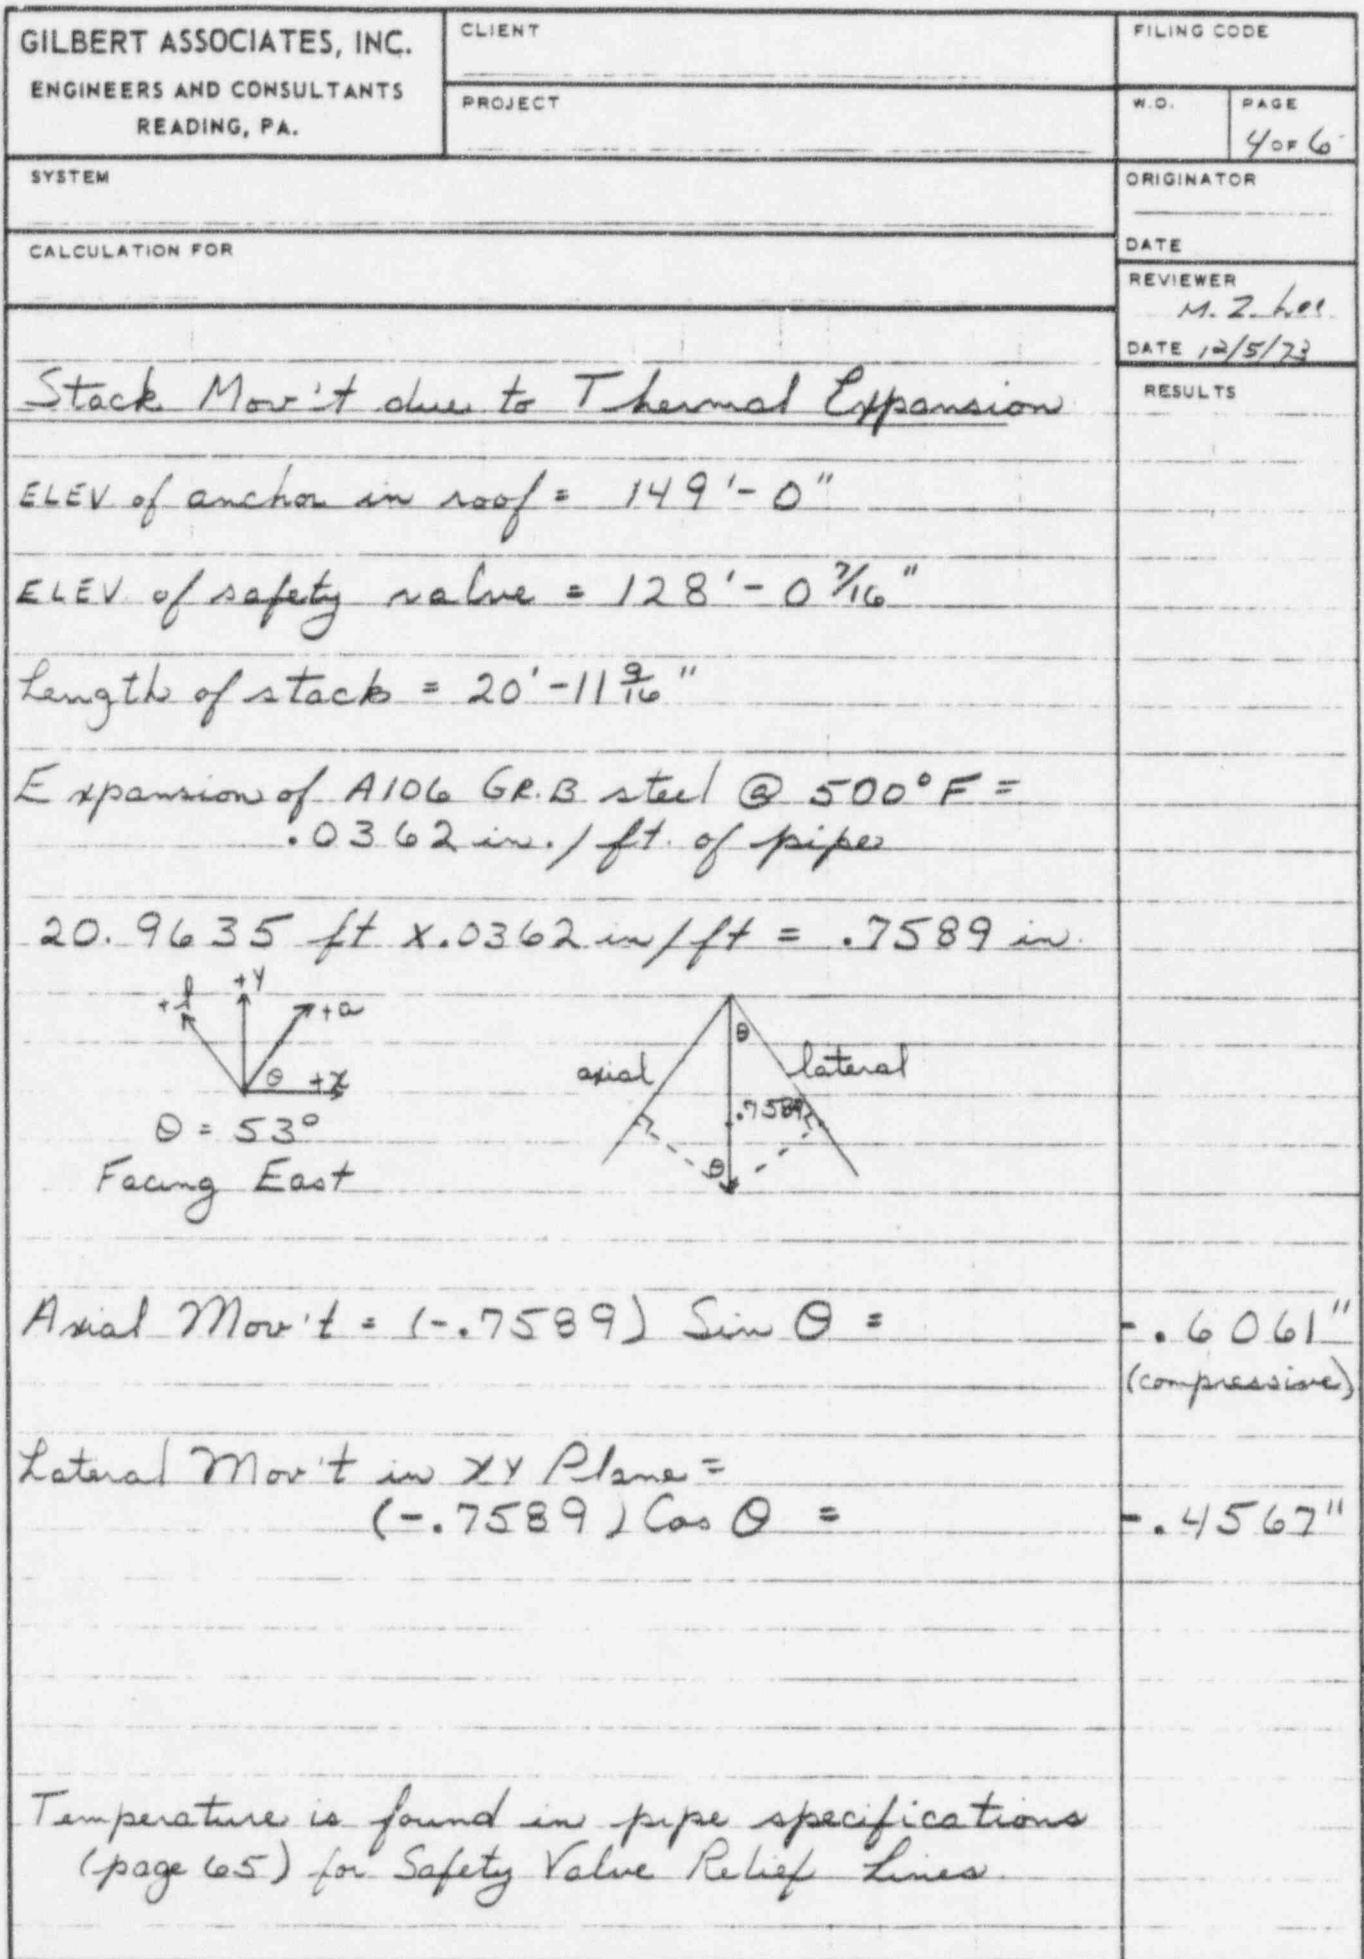 GILBERT ASSOCIATES, INC.
ENGINEERS AND CONSULTANTS
READING, PA.
CLIENT
PROJECT
FILING CODE
W.O.
PAGE
4 OF 6
SYSTEM
ORIGINATOR
DATE
CALCULATION FOR
REVIEWER
M. Z. Lee
DATE 12/5/73
RESULTS
Stack Mov't due to Thermal Expansion
ELEV of anchor in roof = 149'-0"
ELEV. of safety valve = 128'-0 7/16"
Length of stack = 20'-11 9/16"
Expansion of A106 GR.B steel @ 500°F =
.0362 in./ft. of pipe
20.9635 ft x .0362 in/ft = .7589 in.
+l +y +a
θ +x
θ = 53°
Facing East
θ
axial lateral
.7589
θ
Axial Mov't = (-.7589) Sin θ = -.6061"
(compressive)
Lateral Mov't in XY Plane =
(-.7589) Cos θ = -.4567"
Temperature is found in pipe specifications
(page 65) for Safety Valve Relief Lines.